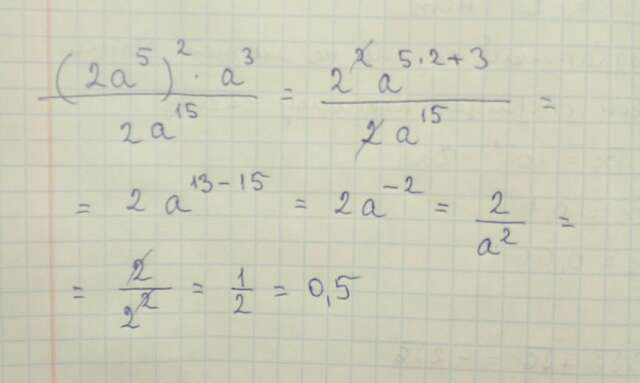 (2a⁵)² · a³ / 2a¹⁵ = 2² a⁵·²⁺³ / 2a¹⁵ =
= 2 a¹³⁻¹⁵ = 2a⁻² = 2 / a² =
= 2 / 2² = 1 / 2 = 0,5